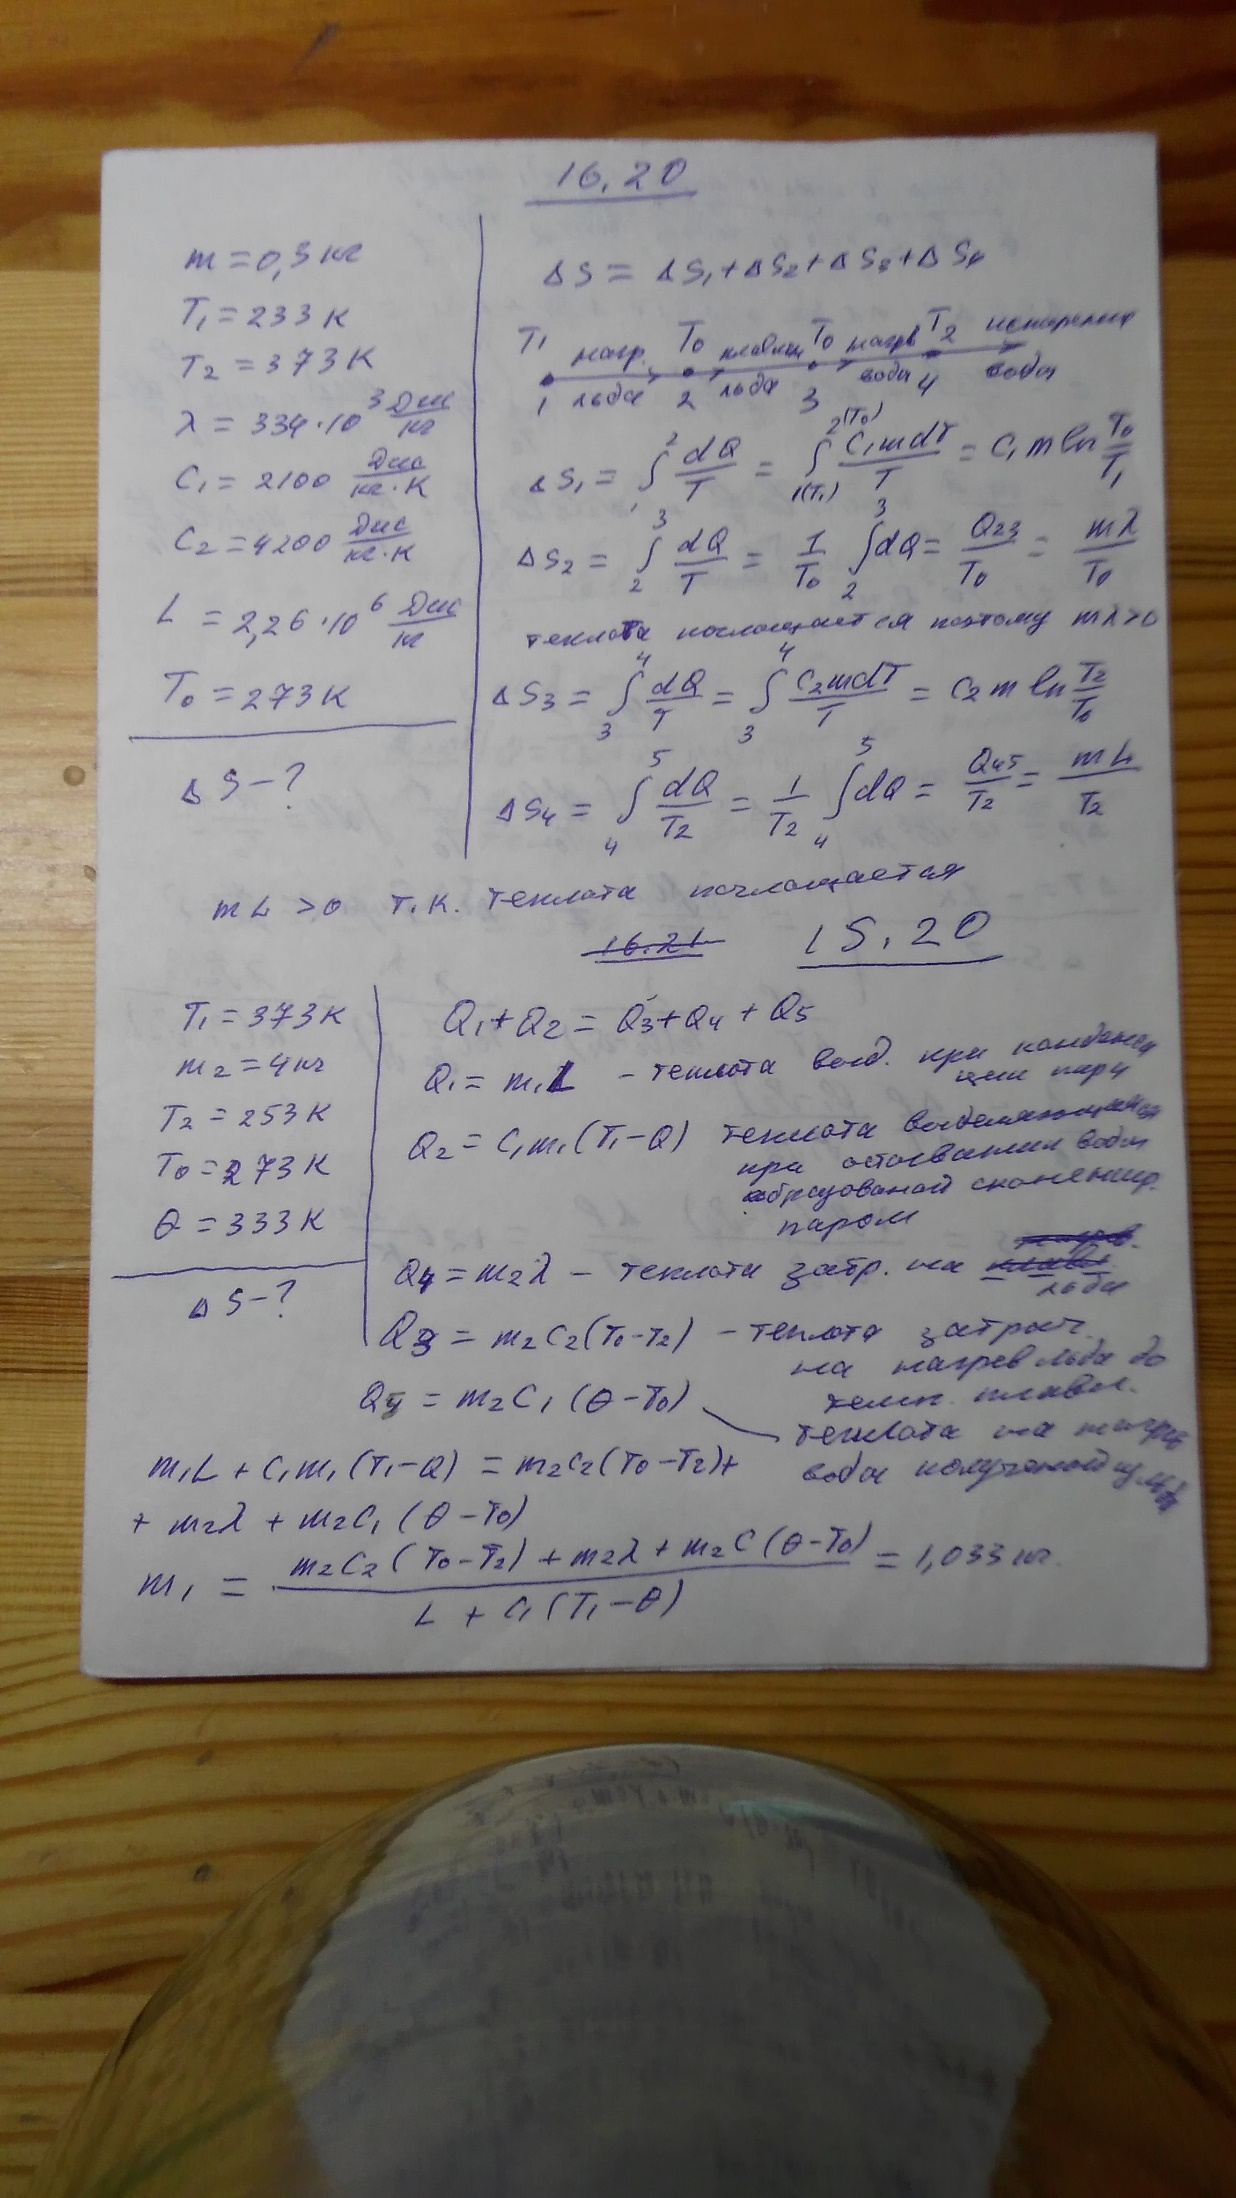 16.20
m = 0,3 кг
T₁ = 233 К
T₂ = 373 К
λ = 334·10³ Дж/кг
C₁ = 2100 Дж/кг·К
C₂ = 4200 Дж/кг·К
L = 2,26·10⁶ Дж/кг
T₀ = 273 К
ΔS – ?
ΔS = ΔS₁ + ΔS₂ + ΔS₃ + ΔS₄
T₁ нагр. T₀ плавлен T₀ нагрв T₂ испарение
1 льда 2 льда 3 воды 4 воды
ΔS₁ = ∫₁² dQ/T = ∫_{1(T₁)}^{2(T₀)} C₁mdT/T = C₁ m ln T₀/T₁
ΔS₂ = ∫₂³ dQ/T = 1/T₀ ∫₂³ dQ = Q₂₃/T₀ = mλ/T₀
теплота поглощается поэтому mλ>0
ΔS₃ = ∫₃⁴ dQ/T = ∫₃⁴ C₂mdT/T = C₂ m ln T₂/T₀
ΔS₄ = ∫₄⁵ dQ/T₂ = 1/T₂ ∫₄⁵ dQ = Q₄₅/T₂ = mL/T₂
mL > 0 т.к. теплота поглощается
16.21 15.20
T₁ = 373 К
m₂ = 4 кг
T₂ = 253 К
T₀ = 273 К
θ = 333 К
ΔS – ?
Q₁ + Q₂ = Q₃ + Q₄ + Q₅
Q₁ = m₁L – теплота выд. при конденса
ции пара
Q₂ = C₁m₁(T₁–Q) теплота выделяющаяся
при остывании воды
образованой сконенсир.
паром
Q₄ = m₂λ – теплота затр. на плавл.
льда
Q₃ = m₂C₂(T₀–T₂) – теплота затрач.
на нагрев льда до
темп. плавл.
Q₅ = m₂C₁(θ–T₀)
теплота на нагрев
воды полученой из льда
m₁L + C₁m₁(T₁–Q) = m₂C₂(T₀–T₂)+
+ m₂λ + m₂C₁(θ–T₀)
m₁ = m₂C₂(T₀–T₂) + m₂λ + m₂C(θ–T₀) / L + C₁(T₁–θ) = 1,033 кг.